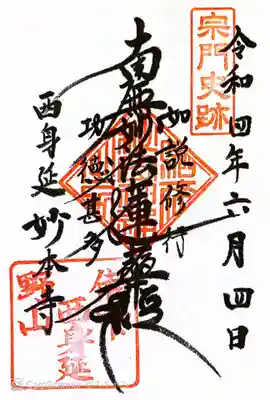 宗門史跡
令和四年六月四日
如説修行
南無妙法蓮華経
功徳甚多
西身延
妙本寺
西身延
野山
CamScanner